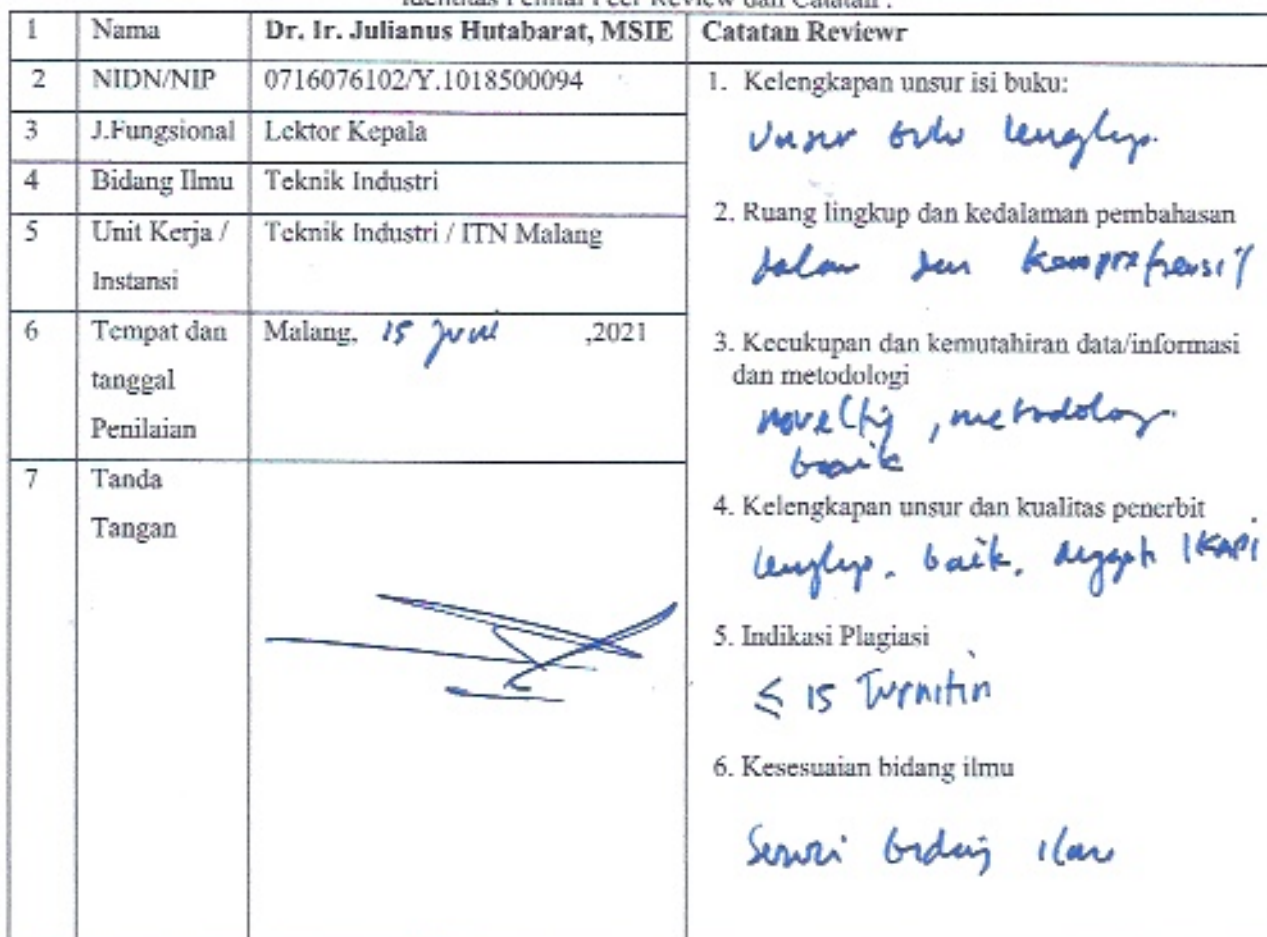 Identitas Penilai Peer Review dan Catatan :
1 Nama Dr. Ir. Julianus Hutabarat, MSIE
2 NIDN/NIP 0716076102/Y.1018500094
3 J.Fungsional Lektor Kepala
4 Bidang Ilmu Teknik Industri
5 Unit Kerja / Teknik Industri / ITN Malang
Instansi
6 Tempat dan Malang, 15 Juni ,2021
tanggal
Penilaian
7 Tanda
Tangan
Catatan Reviewr
1. Kelengkapan unsur isi buku:
Unsur buku lengkap.
2. Ruang lingkup dan kedalaman pembahasan
dalam dan komprehensif
3. Kecukupan dan kemutahiran data/informasi
dan metodologi
novelty, metodologi
baik
4. Kelengkapan unsur dan kualitas penerbit
lengkap, baik, anggota IKAPI
5. Indikasi Plagiasi
≤ 15 Turnitin
6. Kesesuaian bidang ilmu
Sesuai bidang ilmu